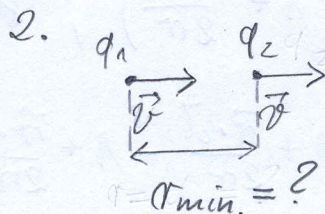 2.
q₁ q₂
v⃗ v⃗
r min. = ?